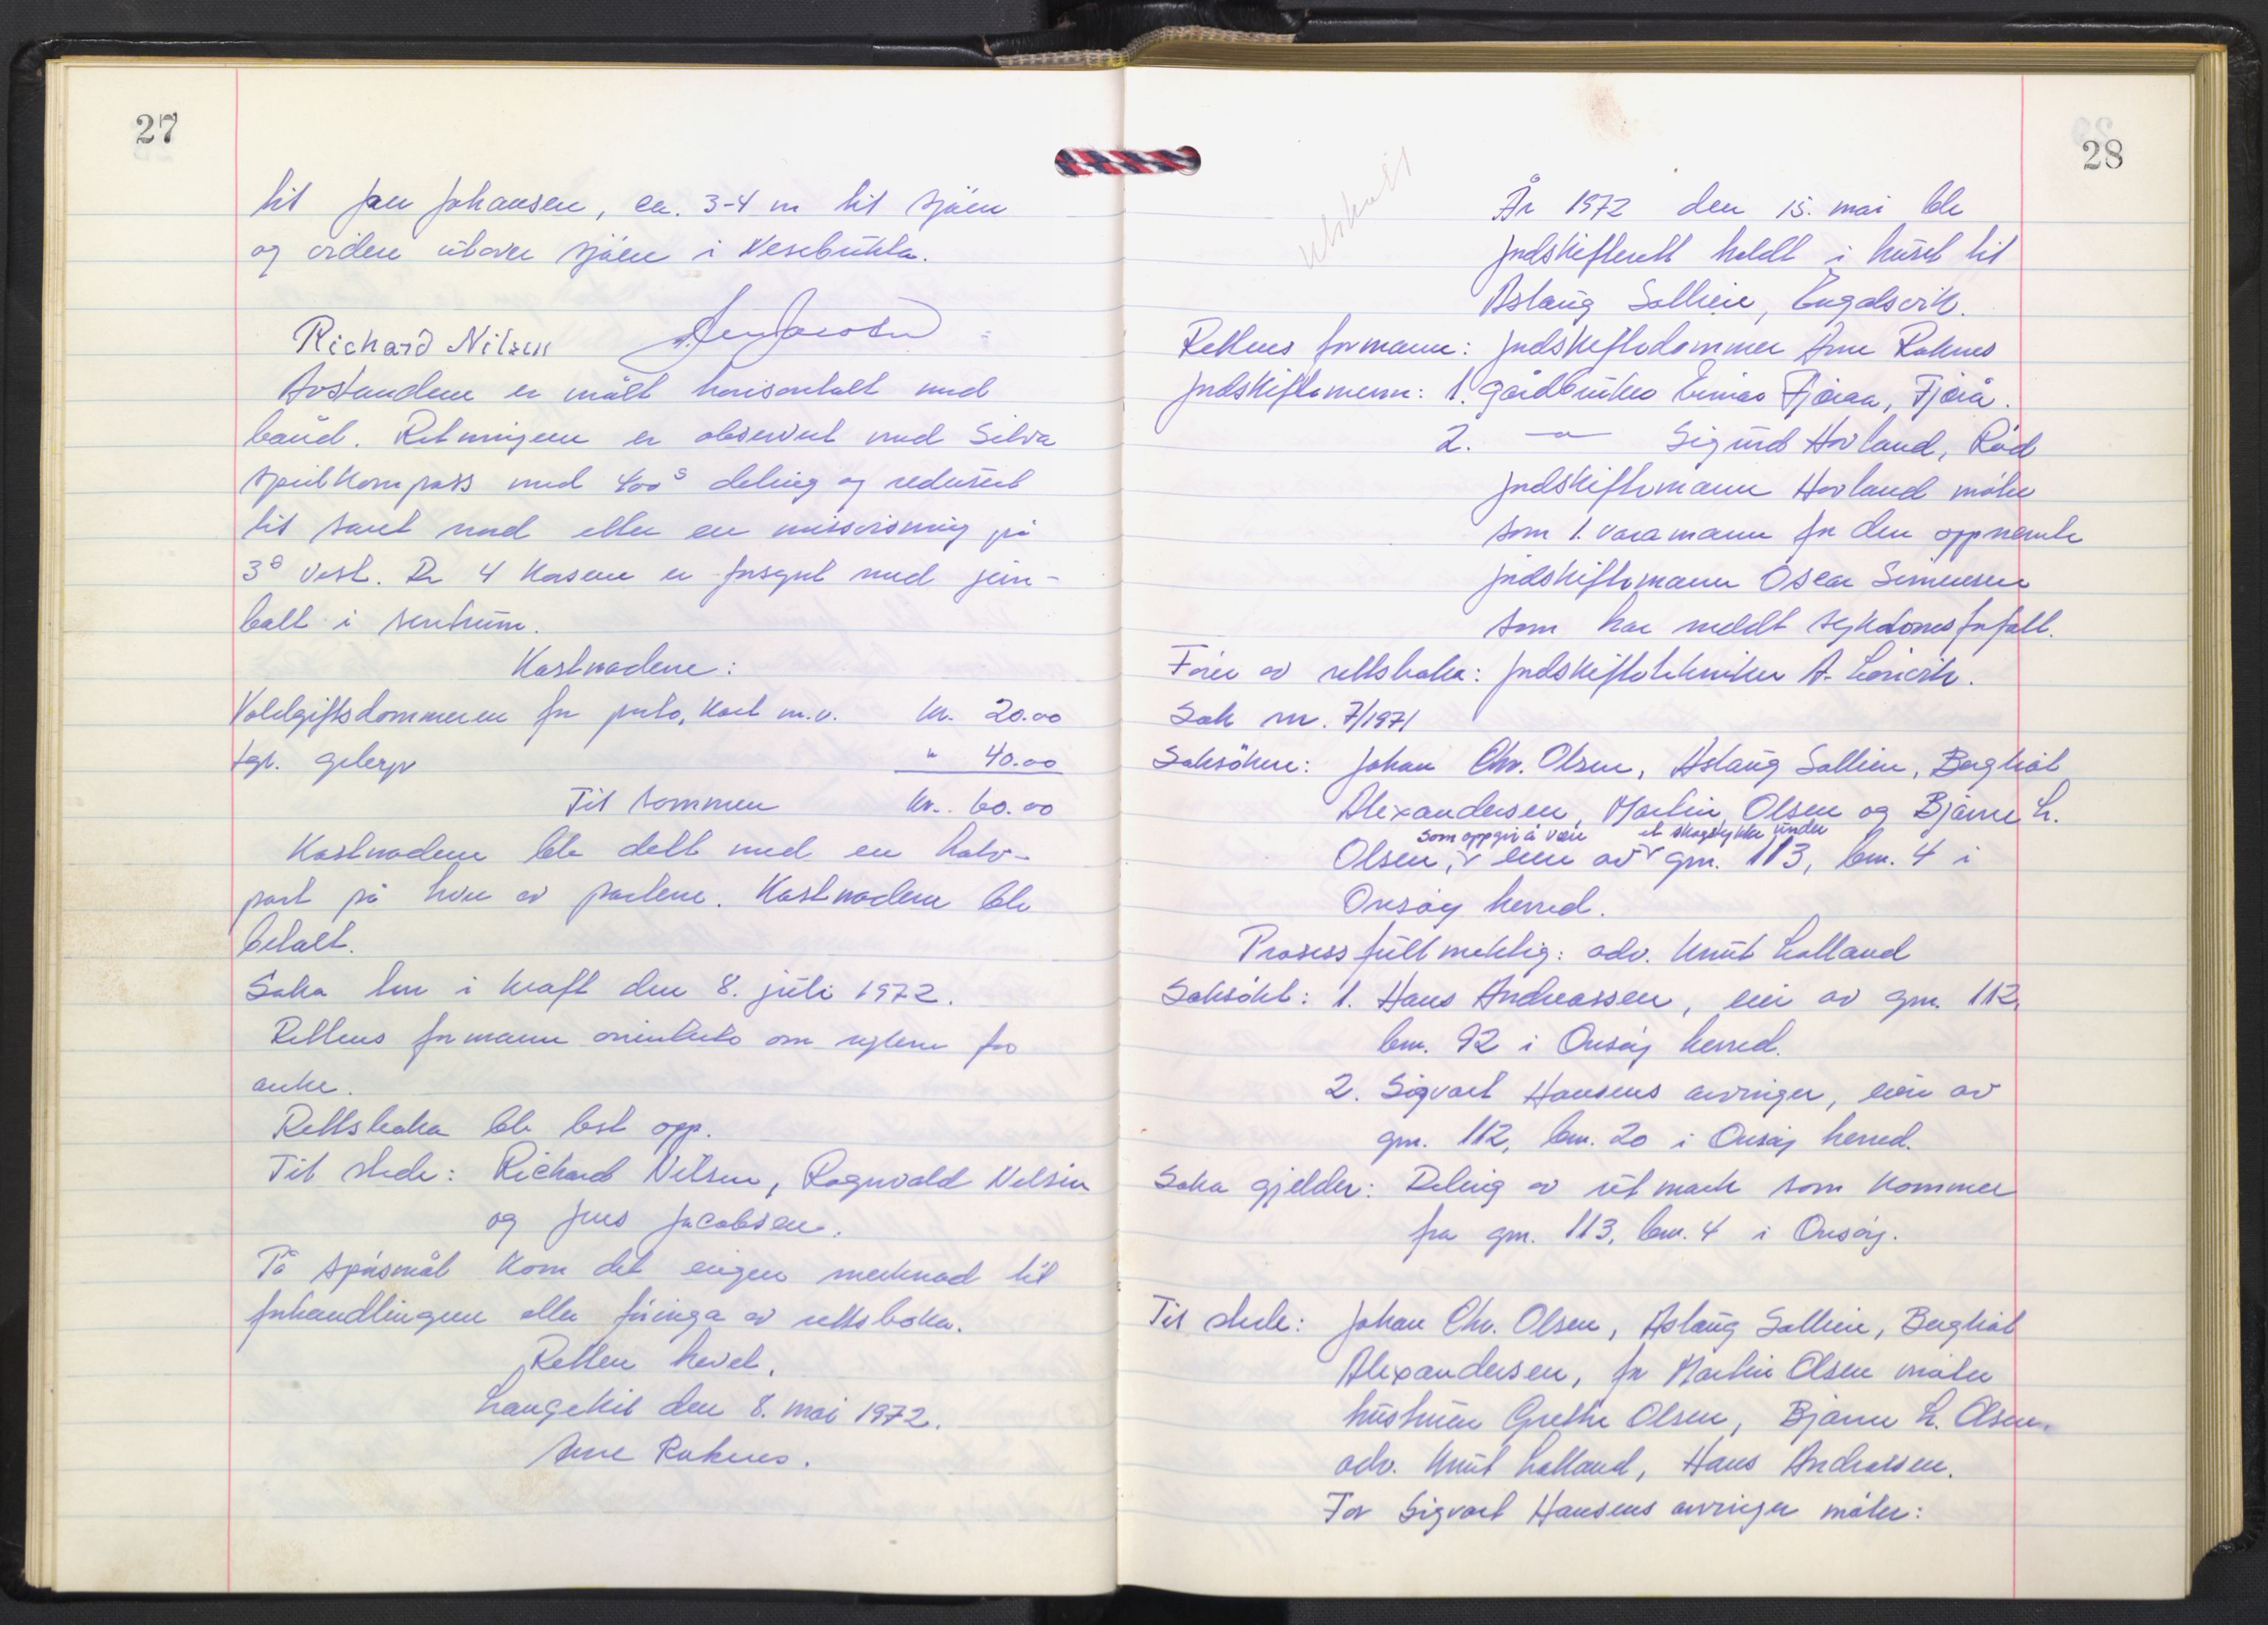 27
til Jan Johansen, ca. 3-4 m til sjöen
og videre utover sjöen i Vesebukta.
Richard Nilsen
Avstandene er målt horisontalt med
band. Retningene er observert med Silva
speilkompass med 400ᵍ deling og redusert
til sant nord etter en missvisning på
3ᵍ vest. De 4 korsene er forsynt med jern-
bolt i sentrum.
Kostnadene:
Voldgiftsdommeren for porto, kart m.v. kr. 20.00
tgl. gebyr " 40.00
Til sammen kr. 60.00
Kostnadene ble delt med en halv-
part på hver av partene. Kostnadene ble
betalt.
Saka trer i kraft den 8. juli 1972.
Rettens formann orienterte om reglene for
anke.
Rettsboka ble lest opp.
Til stede: Richard Nilsen, Ragnvald Nilsen
og Jens Jacobsen.
På spörsmål kom det ingen merknad til
forhandlingene eller föringa av rettsboka.
Retten hevet.
Langekil den 8. mai 1972.
Arne Raknes.
28
utskrift
År 1972 den 15. mai ble
jordskifterett holdt i huset til
Aslaug Sollien, Engalsvik.
Rettens formann: Jordskiftedommer Arne Raknes
Jordskiftemenn: 1. gårdbruker Einar Fjæraa, Fjærå.
2. —"— Sigurd Hovland, Råd
Jordskiftemann Hovland möter
som 1. varamann for den oppnevnte
jordskiftemann Oscar Simensen
som har meldt sykdomsforfall.
Förer av rettsboka: Jordskiftetekniker A. Lönevik.
Sak nr. 7/1971
Saksökere: Johan Chr. Olsen, Aslaug Sollien, Bergliot
Alexandersen, Martin Olsen og Bjarne L.
som oppgir å være et skogstykke under
Olsen, eier av gnr. 113, bnr. 4 i
Onsöy herred.
Prosessfullmektig: adv. Knut Lolland
Saksökt: 1. Hans Andreassen, eier av gnr. 112,
bnr. 92 i Onsöy herred.
2. Sigvart Hansens arvinger, eier av
gnr. 112, bnr. 20 i Onsöy herred.
Saka gjelder: Deling av utmark som kommer
fra gnr. 113, bnr. 4 i Onsöy.
Til stede: Johan Chr. Olsen, Aslaug Sollien, Bergliot
Alexandersen, for Martin Olsen möter
hustruen Grethe Olsen, Bjarne L. Olsen,
adv. Knut Lolland, Hans Andreassen.
For Sigvart Hansens arvinger möter: